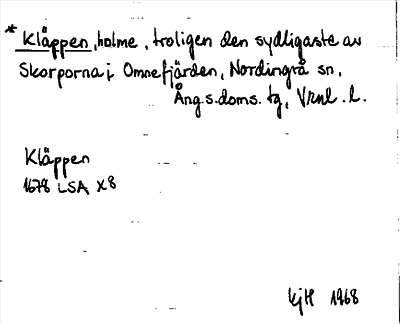 * Kläppen, holme, troligen den sydligaste av
Skorporna i Omnefjärden, Nordingrå sn,
Ång.s.doms. tg, Vrnl. l.
Kläppen
1678 LSA X8
KjH 1968